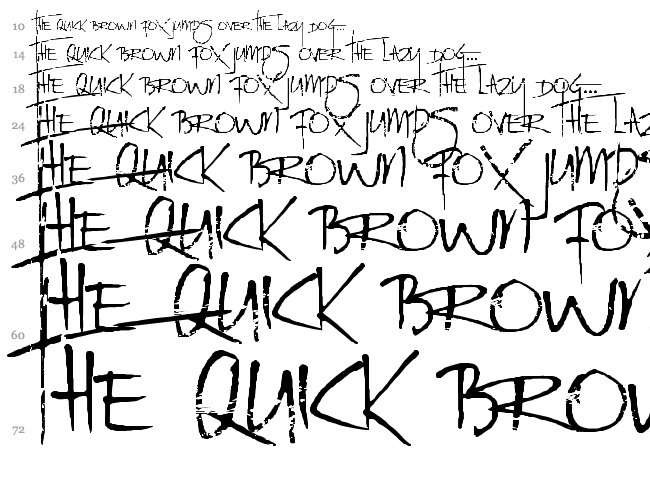 10 THE QUICK BROWN FOX JUMPS OVER THE LAZY DOG...
14 THE QUICK BROWN FOX JUMPS OVER THE LAZY DOG...
18 THE QUICK BROWN FOX JUMPS OVER THE LAZY DOG...
24 THE QUICK BROWN FOX JUMPS OVER THE LAZ
36 THE QUICK BROWN FOX JUMPS
48 THE QUICK BROWN FOX
60 THE QUICK BROWN
72 THE QUICK BROW